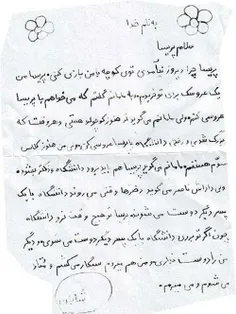 به نام خدا
سلام پریسا
پریسا چرا دیروز نیامدی توی کوچه با من بازی کنی. پریسا من
یک عروسک برای تو خریدم و به مامانم گفتم که می خواهم با پریسا
عروسی کنم ولی مامانم می گوید تو هنوز کوچولو هستی و هر وقت که
بزرگ شدی و رفتی دانشگاه با پریسا عروسی کن چون من هنوز کلاس
سوم هستم مامانم می گوید پریسا هم باید برود دانشگاه و دکتر بشود
ولی داداش ناصر می گوید دخترها وقتی می روند دانشگاه با یک
پسر دیگر دوست می شوند پریسا تو هیچ وقت نرو دانشگاه
چون اگر تو بروی دانشگاه با یک پسر دیگر دوست می شوی و دیگر
من را دوست نداری و من هم میروم سیگار می کشم و معتاد
می شوم و می میرم.